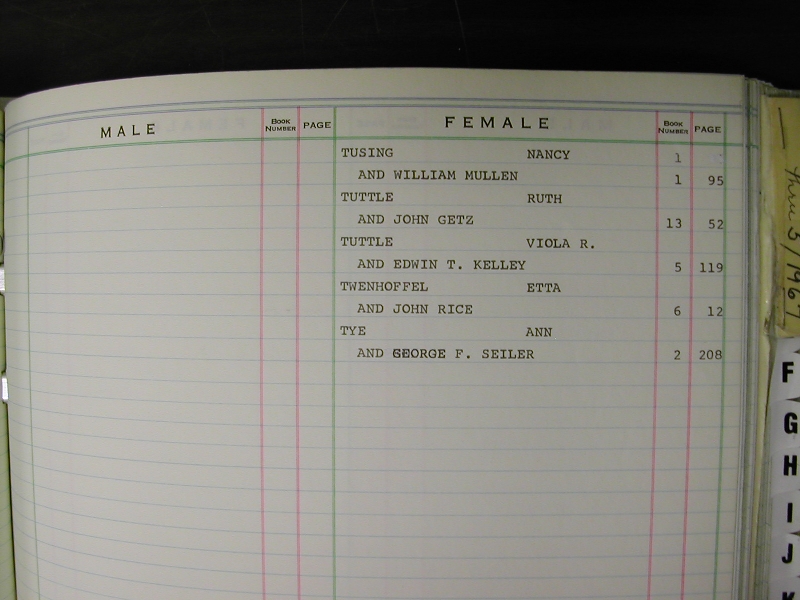 MALE BOOK NUMBER PAGE FEMALE BOOK NUMBER PAGE
TUSING NANCY 1
AND WILLIAM MULLEN 1 95
TUTTLE RUTH
AND JOHN GETZ 13 52
TUTTLE VIOLA R.
AND EDWIN T. KELLEY 5 119
TWENHOFFEL ETTA
AND JOHN RICE 6 12
TYE ANN
AND GEORGE F. SEILER 2 208
thru 3/1967
F
G
H
I
J
K